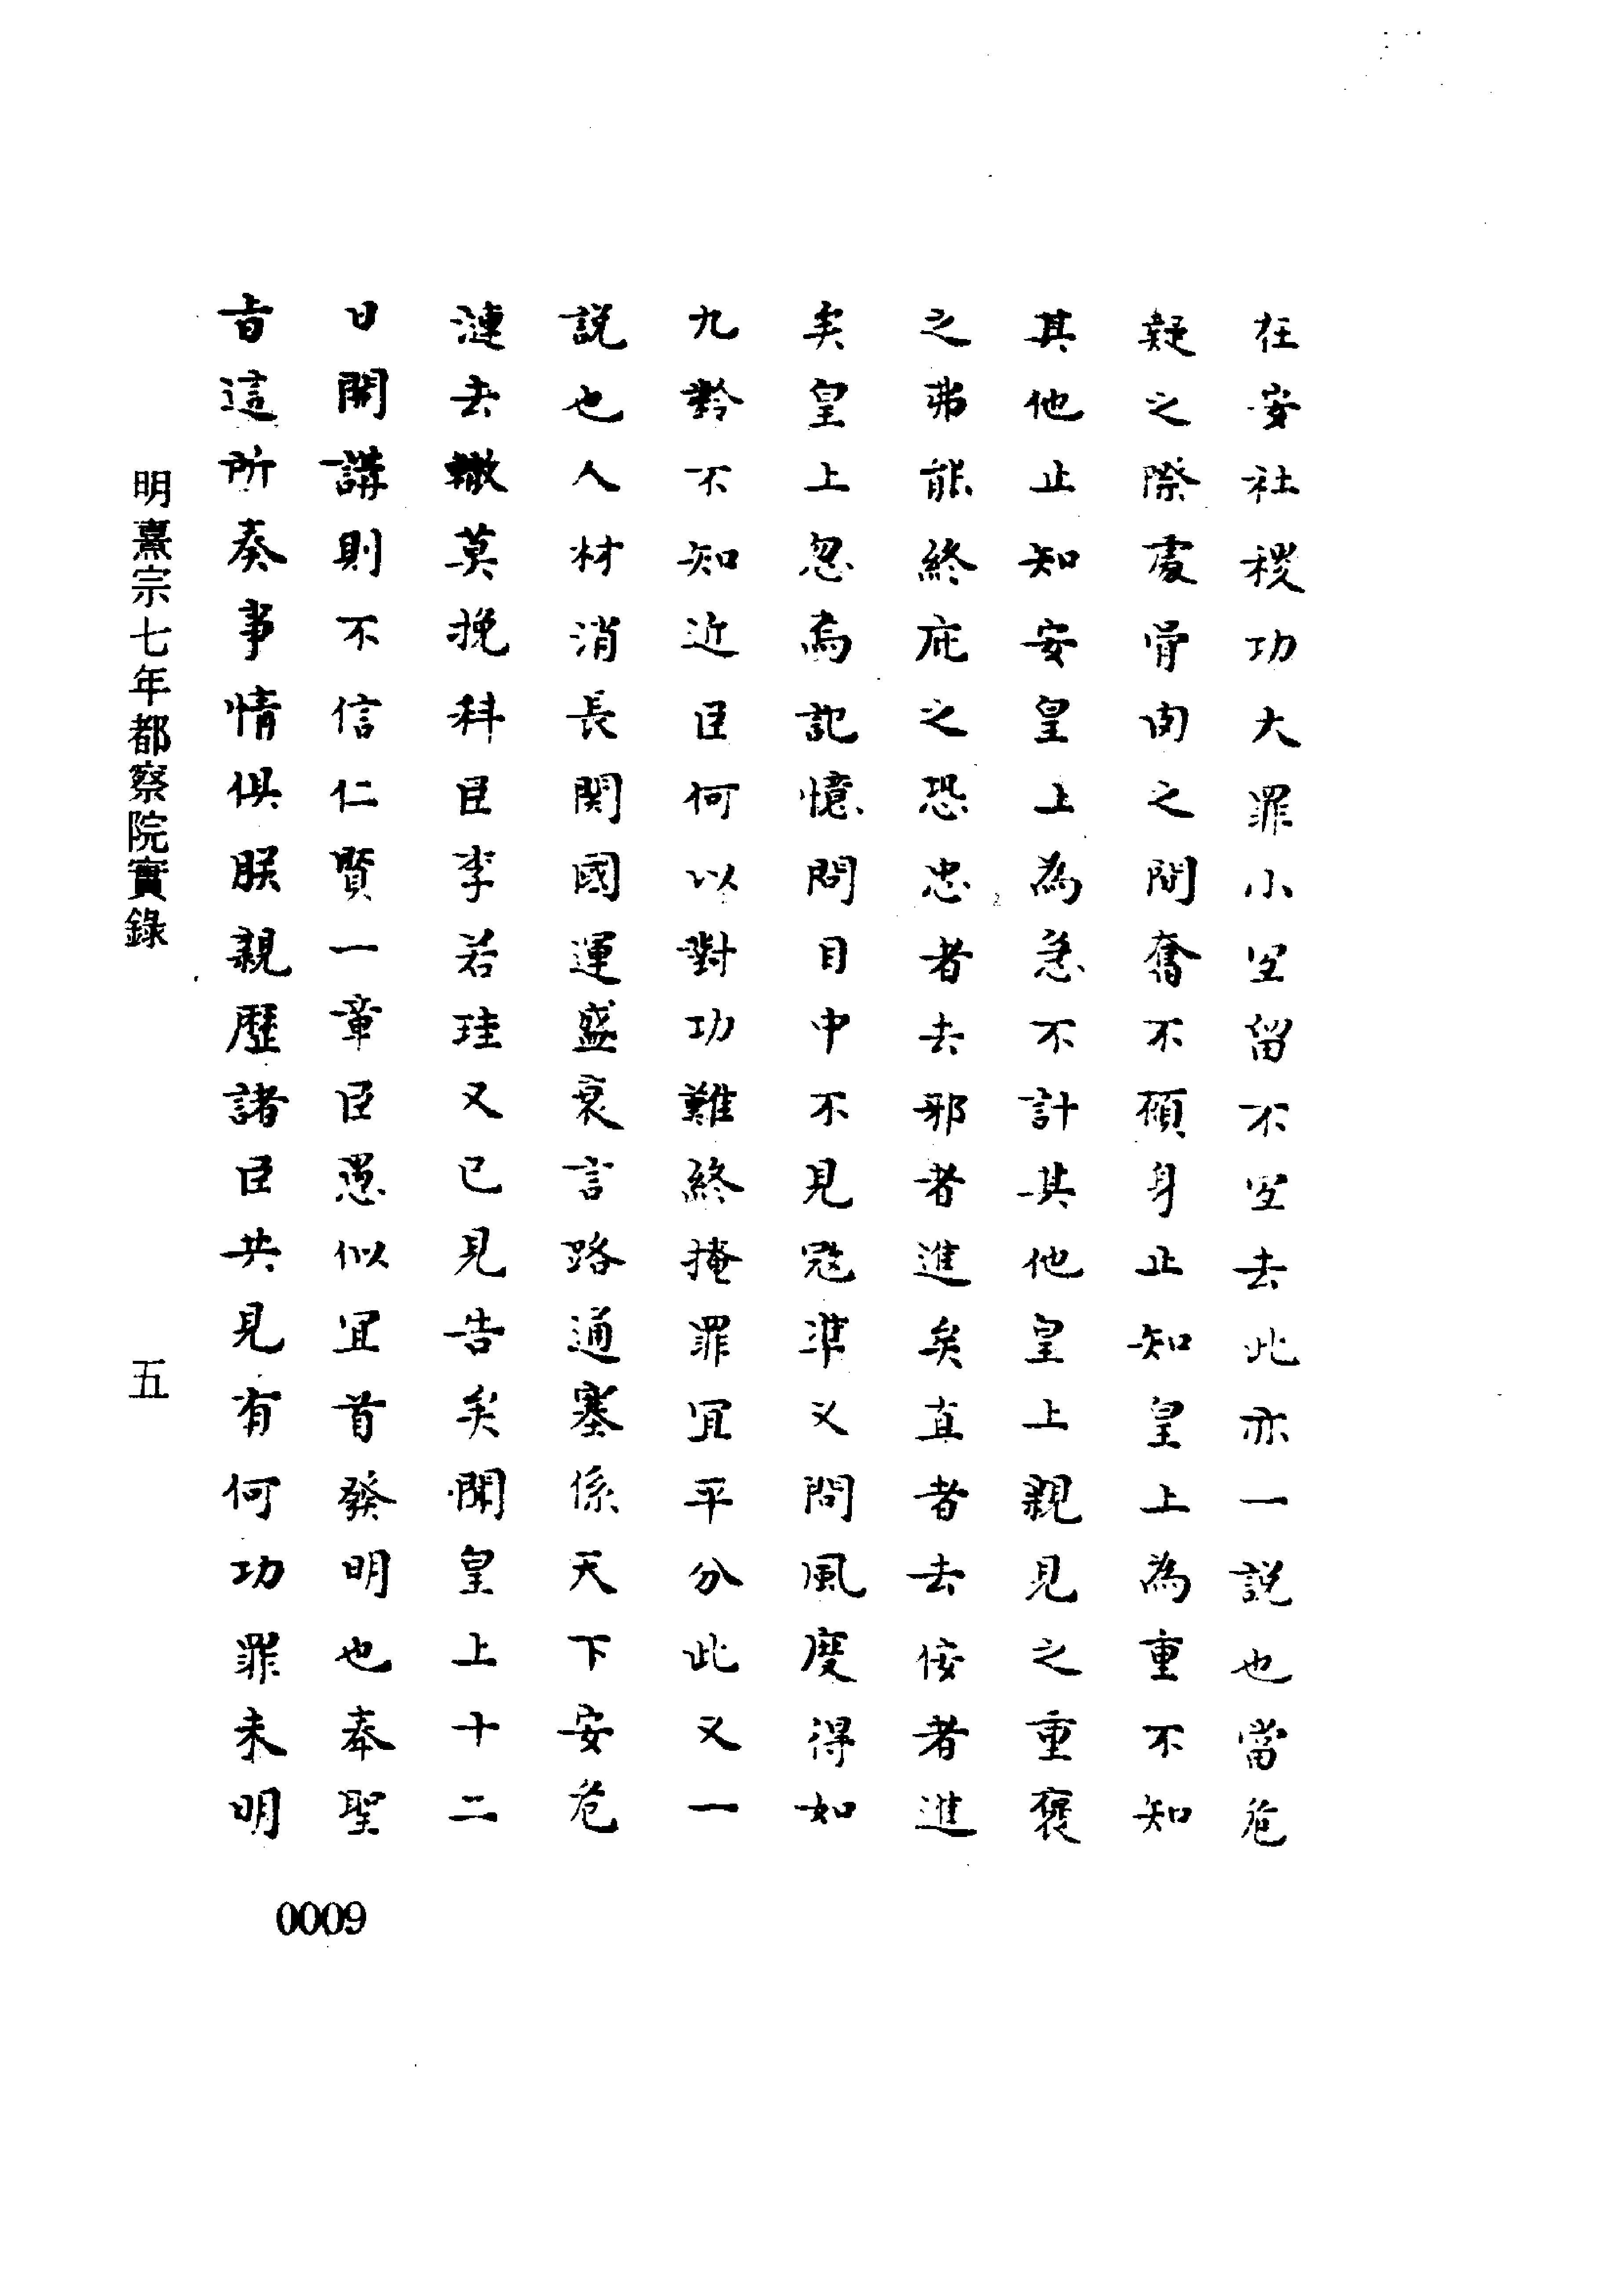 在安社稷功大罪小宜留不宜去此亦一説也當危
疑之際處骨肉之間奮不顧身止知皇上為重不知
其他止知安皇上為急不計其他皇上親見之重褒
之弗能終庇之恐忠者去邪者進矣直者去佞者進
矣皇上忽焉記憶問目中不見寇準又問風度得如
九齡不知近臣何以對功難終掩罪宜平分此又一
説也人材消長関國運盛衰言路通塞係天下安危
漣去轍莫挽科臣李若珪又已見告矣聞皇上十二
日開講則不信仁賢一章臣愚似宜首發明也奉聖
旨這所奏事情俱朕親歷諸臣共見有何功罪未明
明熹宗七年都察院實錄
五
0009